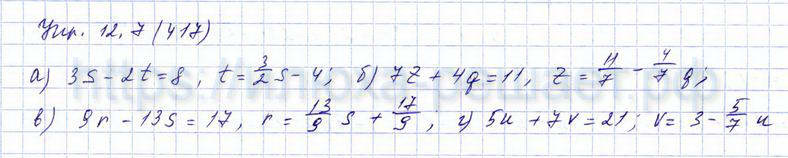 Упр. 12.7 (417)
а) 3s - 2t = 8, t = 3/2 s - 4; б) 7z + 4q = 11, z = 11/7 - 4/7 q;
в) 9r - 13s = 17, r = 13/9 s + 17/9; г) 5u + 7v = 21; v = 3 - 5/7 u